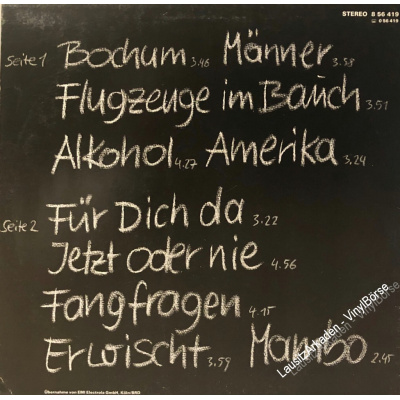 STEREO 8 56 419
0 56 419
Seite 1 Bochum 3.46 Männer 3.58
Flugzeuge im Bauch 3.51
Alkohol 4.27 Amerika 3.24
Seite 2 Für Dich da 3.22
Jetzt oder nie 4.56
Fangfragen 4.15
Erwischt 3.59 Mambo 2.45
Übernahme von EMI Electrola GmbH, Köln/BRD
LausitzArkaden - VinylBörse